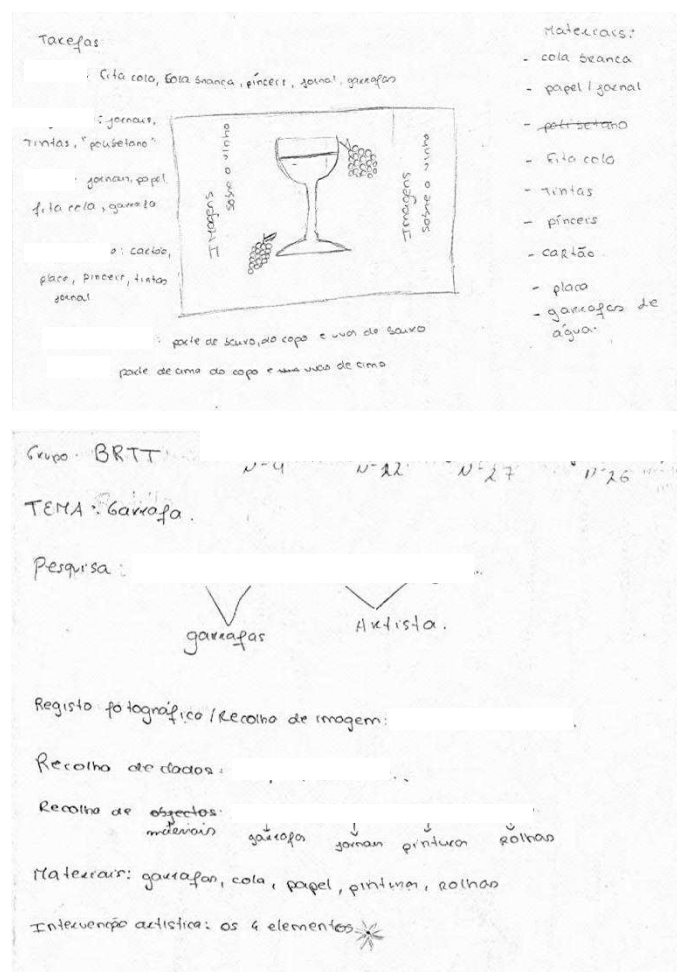 Tarefas
: fita cola, cola branca, pínceis, jornal, garrafas
: jornais,
Tintas, "polibetano".
: jornais, papel
fita cola, garrafa
o: cartão,
placo, pinceis, tintas
jornal
Imagens
sobre o vinho
Imagens
sobre o vinho
: parte de baixo, do copo e uvas de baixo
parte de cima do copo e uvas de cima
Materiais:
- cola branca
- papel / jornal
- polibetano
- Fita cola
- Tintas
- pínceis
- cartão
- placo
- garrafas de
água.
Grupo: BRTT:
Nº 4 Nº 22 Nº 27 Nº 26
TEMA: Garrafa.
Pesquisa:
garrafas Artista.
Registo fotográfico / Recolha de imagem:
Recolha de dados:
Recolha de objectos:
materiais garrafa jornais pintura Rolhas
Materiais: garrafas, cola, papel, pinturas, rolhas
Intervenção artistica: os 4 elementos